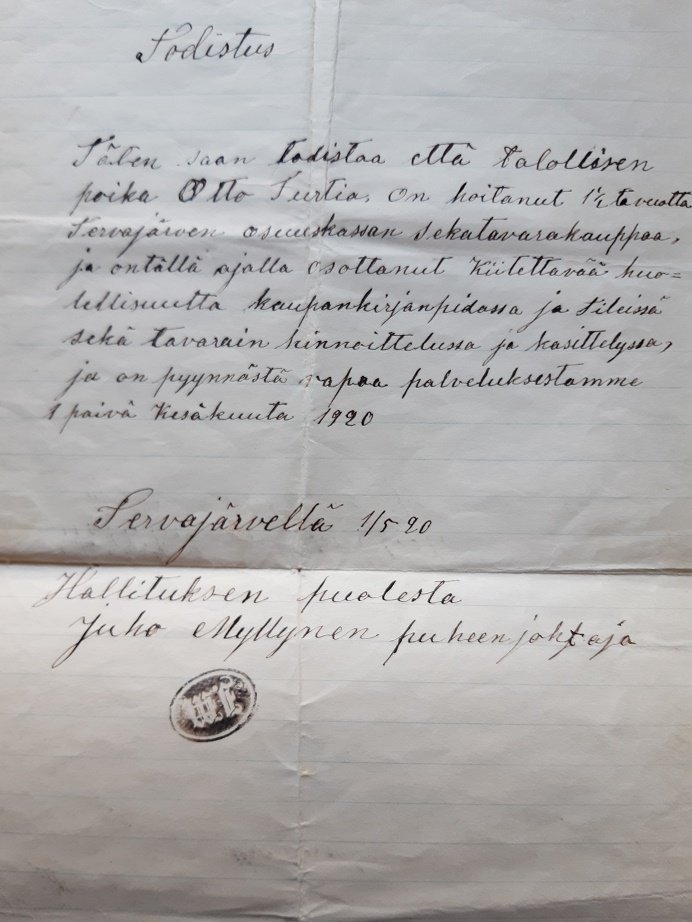 Todistus
Täten saan todistaa että talollisen
poika Otto Turtia, on hoitanut 1½ ta vuotta
Servajärven osuuskassan sekatavarakauppaa,
ja ontällä ajalla osottanut Kiitettävää huo=
lellisuutta kaupankirjanpidossa ja tileissä
sekä tavarain hinnoittelussa ja kasittelyssa,
ja on pyynnöstä vapaa palveluksestamme
1 päivä Kesäkuuta 1920
Servajärvellä 1/5 20
Hallituksen puolesta
Juho Myllynen puheenjohtaja